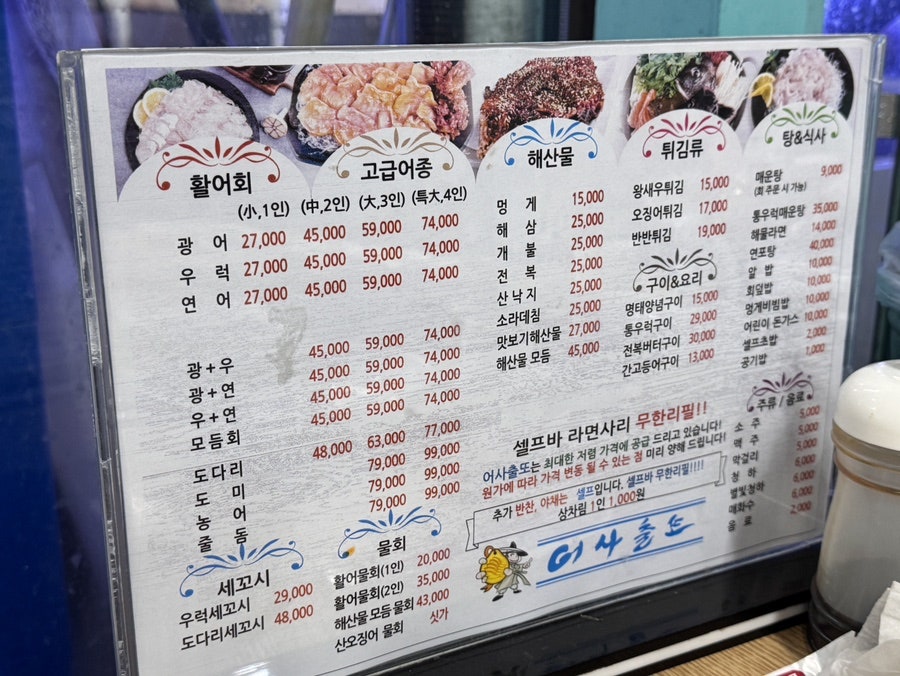 활어회
고급어종
(小,1인) (中,2인) (大,3인) (특大,4인)
광 어 27,000 45,000 59,000 74,000
우 럭 27,000 45,000 59,000 74,000
연 어 27,000 45,000 59,000 74,000
광+우 45,000 59,000 74,000
광+연 45,000 59,000 74,000
우+연 45,000 59,000 74,000
모듬회 45,000 59,000 74,000
도다리 48,000 63,000 77,000
도 미 79,000 99,000
농 어 79,000 99,000
줄 돔 79,000 99,000
세꼬시
우럭세꼬시 29,000
도다리세꼬시 48,000
물회
활어물회(1인) 20,000
활어물회(2인) 35,000
해산물 모듬 물회 43,000
산오징어 물회 싯가
해산물
멍 게 15,000
해 삼 25,000
개 불 25,000
전 복 25,000
산낙지 25,000
소라데침 25,000
맛보기해산물 27,000
해산물 모듬 45,000
튀김류
왕새우튀김 15,000
오징어튀김 17,000
반반튀김 19,000
구이&요리
명태양념구이 15,000
통우럭구이 29,000
전복버터구이 30,000
간고등어구이 13,000
탕&식사
매운탕 9,000
(회 주문 시 가능)
통우럭매운탕 35,000
해물라면 14,000
연포탕 40,000
알 밥 10,000
회덮밥 10,000
멍게비빔밥 10,000
어린이 돈가스 10,000
셀프초밥 2,000
공기밥 1,000
주류 / 음료
소 주 5,000
맥 주 5,000
막걸리 5,000
청 하 6,000
별빛청하 6,000
매화수 6,000
음 료 2,000
셀프바 라면사리 무한리필!!
어사출또는 최대한 저렴 가격에 공급 드리고 있습니다!
원가에 따라 가격 변동 될 수 있는 점 미리 양해 드립니다!
추가 반찬, 야채는 셀프입니다. 셀프바 무한리필!!!!
상차림 1인 1,000원
어사출또